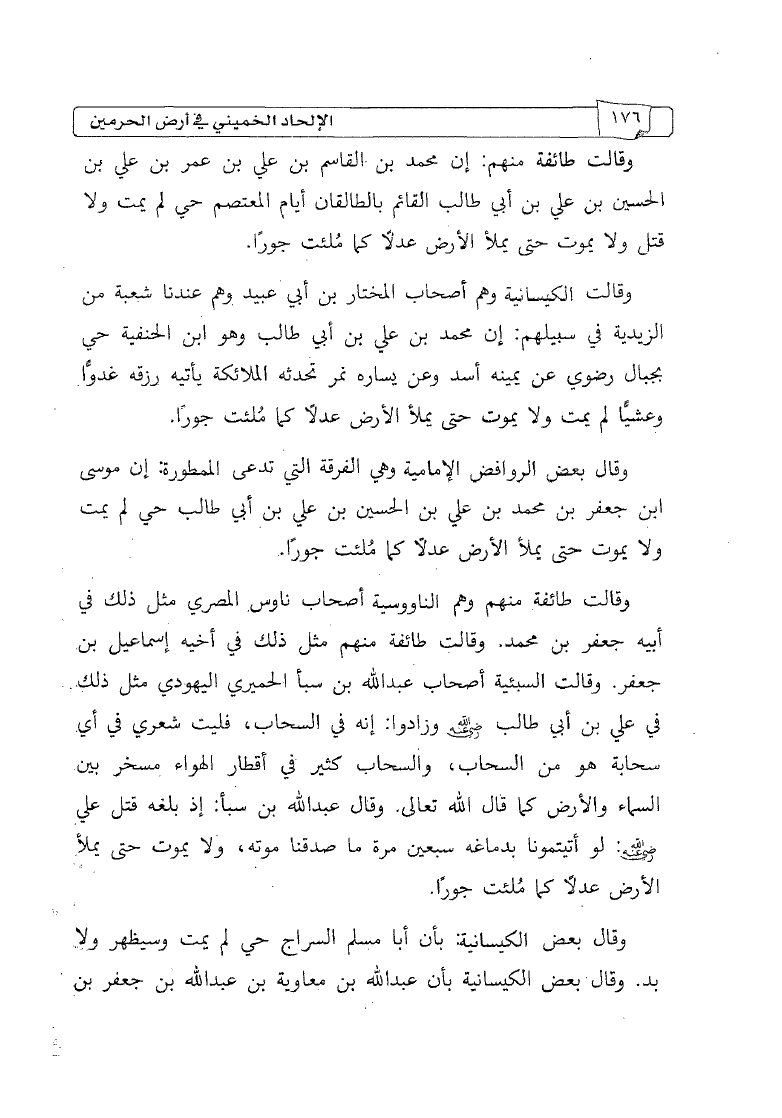 ١٧٦
الإلحاد الخميني في أرض الحرمين
وقالت طائفة منهم: إن محمد بن القاسم بن علي بن عمر بن علي بن
الحسين بن علي بن أبي طالب القائم بالطالقان أيام المعتصم حي لم يمت ولا
قتل ولا يموت حتى يملأ الأرض عدلًا كما مُلئت جورًا.
وقالت الكيسانية وهم أصحاب المختار بن أبي عبيد وهم عندنا شعبة من
الزيدية في سبيلهم: إن محمد بن علي بن أبي طالب وهو ابن الحنفية حي
بجبال رضوي عن يمينه أسد وعن يساره نمر تحدثه الملائكة يأتيه رزقه غدوًّا
وعشيًّا لم يمت ولا يموت حتى يملأ الأرض عدلًا كما مُلئت جورًا.
وقال بعض الروافض الإمامية وهي الفرقة التي تدعى الممطورة: إن موسى
ابن جعفر بن محمد بن علي بن الحسين بن علي بن أبي طالب حي لم يمت
ولا يموت حتى يملأ الأرض عدلًا كما مُلئت جورًا.
وقالت طائفة منهم وهم الناووسية أصحاب ناوس المصري مثل ذلك في
أبيه جعفر بن محمد. وقالت طائفة منهم مثل ذلك في أخيه إسماعيل بن
جعفر. وقالت السبئية أصحاب عبدالله بن سبأ الحميري اليهودي مثل ذلك
في علي بن أبي طالب رضي الله عنه وزادوا: إنه في السحاب، فليت شعري في أي
سحابة هو من السحاب، والسحاب كثير في أقطار الهواء مسخر بين
السماء والأرض كما قال الله تعالى. وقال عبدالله بن سبأ: إذ بلغه قتل علي
رضي الله عنه: لو أتيتمونا بدماغه سبعين مرة ما صدقنا موته، ولا يموت حتى يملأ
الأرض عدلًا كما مُلئت جورًا.
وقال بعض الكيسانية: بأن أبا مسلم السراج حي لم يمت وسيظهر ولا
بد. وقال بعض الكيسانية بأن عبدالله بن معاوية بن عبدالله بن جعفر بن